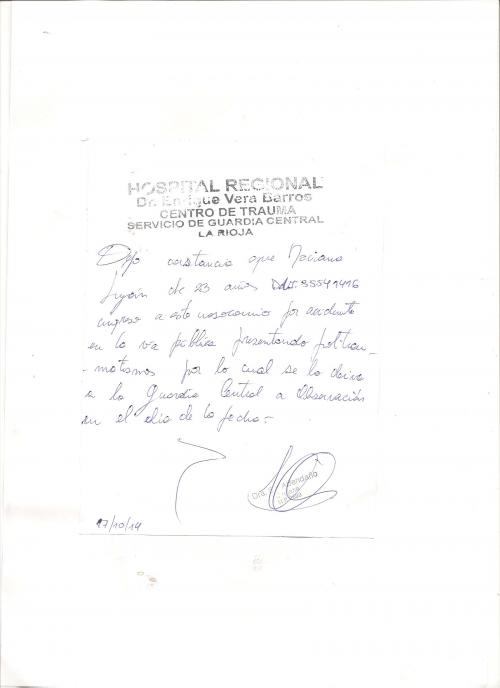 HOSPITAL REGIONAL
Dr. Enrique Vera Barros
CENTRO DE TRAUMA
SERVICIO DE GUARDIA CENTRAL
LA RIOJA
Dejo constancia que Mariano
Luján de 23 años DNI: 35541416
ingreso a este nosocomio por accidente
en la vía pública presentando politrau-
-matismos por lo cual se lo deriva
a la Guardia Central a Observación
en el día de la fecha.-
Dra. Avendaño
17/10/14